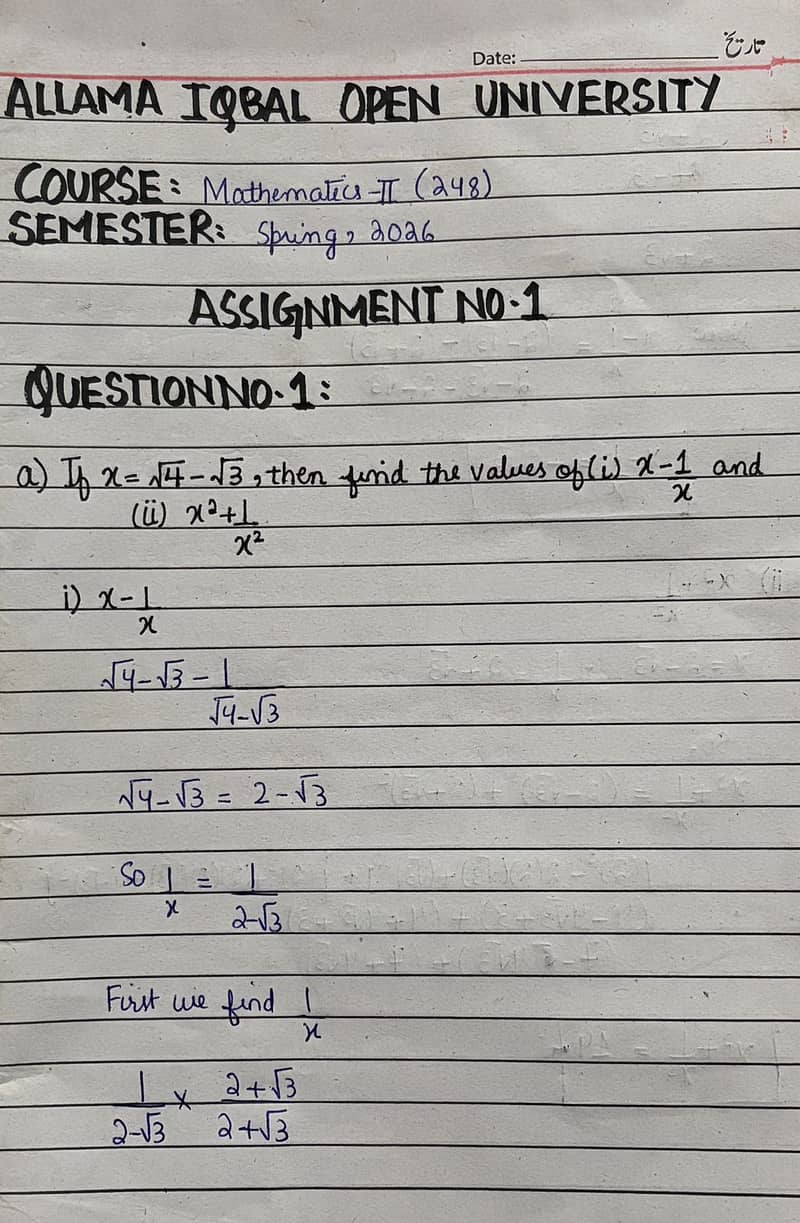 Date: ____________ تاریخ
ALLAMA IQBAL OPEN UNIVERSITY
COURSE: Mathematics-II (248)
SEMESTER: Spring, 2026
ASSIGNMENT NO.1
QUESTION NO.1:
a) If x = √4 - √3, then find the values of (i) x - 1/x and
(ii) x² + 1/x²
i) x - 1/x
√4 - √3 - 1/(√4 - √3)
√4 - √3 = 2 - √3
So 1/x = 1/(2 - √3)
First we find 1/x
1/(2 - √3) × (2 + √3)/(2 + √3)